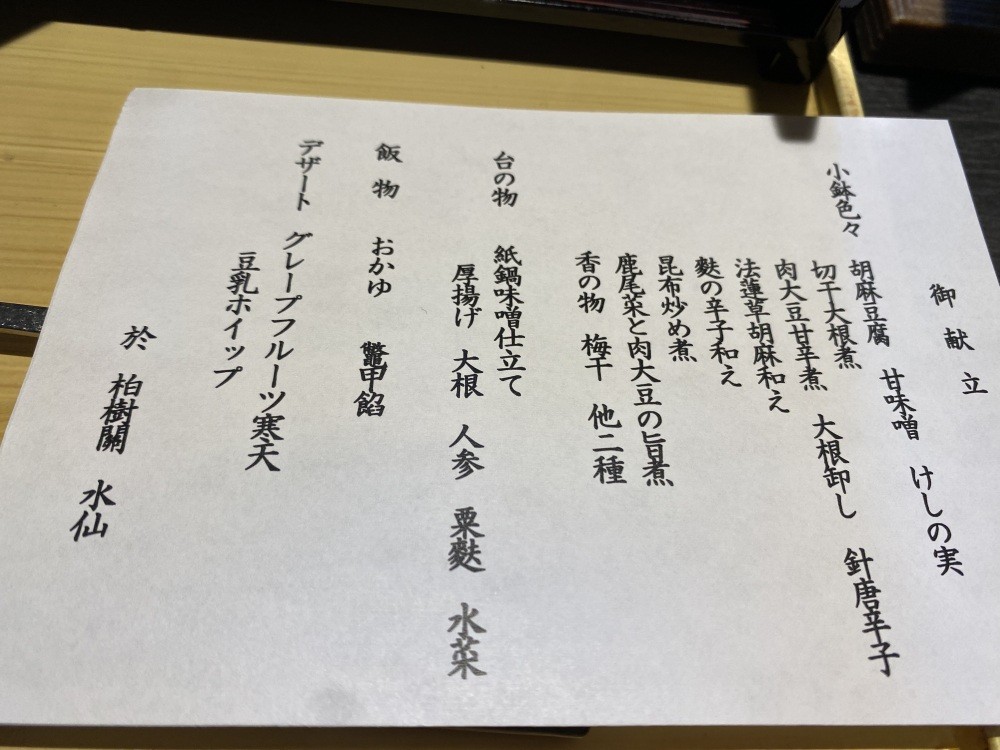 御献立
小鉢色々
胡麻豆腐 甘味噌 けしの実
切干大根煮
肉大豆甘辛煮 大根卸し 針唐辛子
法蓮草胡麻和え
麩の辛子和え
昆布炒め煮
鹿尾菜と肉大豆の旨煮
香の物 梅干 他二種
台の物 紙鍋味噌仕立て
厚揚げ 大根 人参 粟麩 水菜
飯物 おかゆ 鼈甲餡
デザート グレープフルーツ寒天
豆乳ホイップ
於 柏樹關 水仙